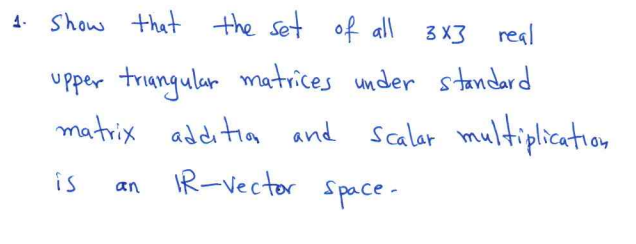 1. Show that the set of all 3x3 real
upper triangular matrices under standard
matrix addition and scalar multiplication
is an IR-Vector space.